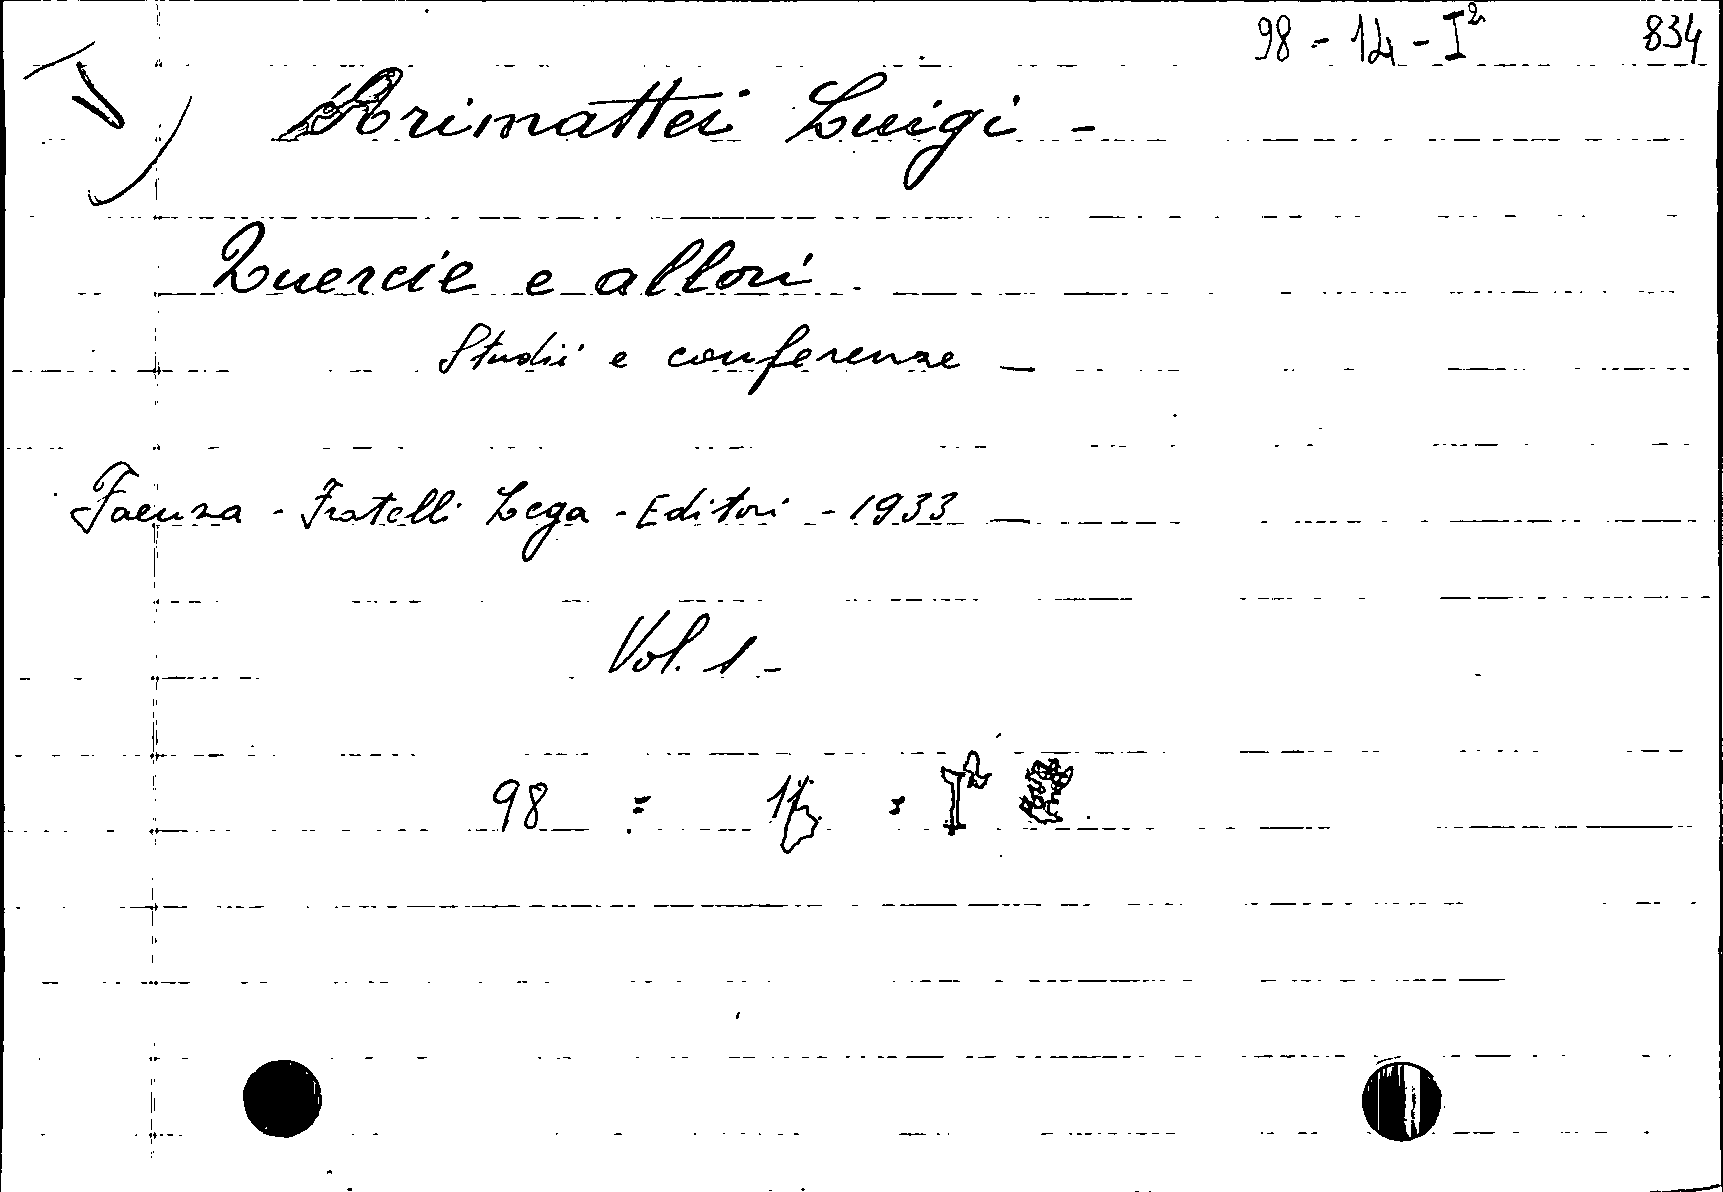 98 - 14 - I² 834
Arimattei Luigi -
Quercie e allori
Studii e conferenze -
Faenza - Fratelli Lega - Editori - 1933
Vol. 1 -
98 = = I²